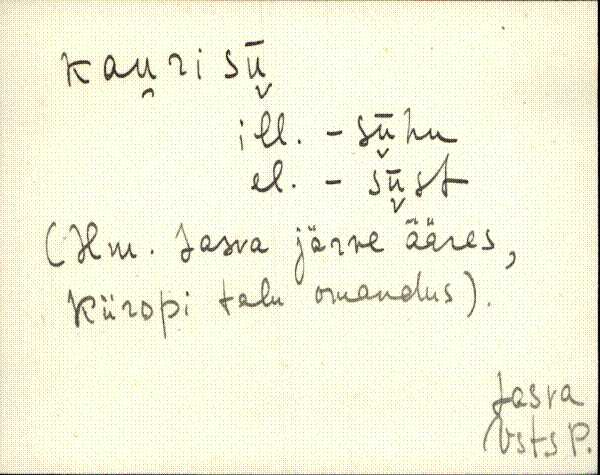 kau̯ri sǖ̬
ill. - sǖ̬hu
el. - sǖ̬st
(Hm. Jasva järve ääres,
Küropi talu omandus).
Jasva
Vsts P.